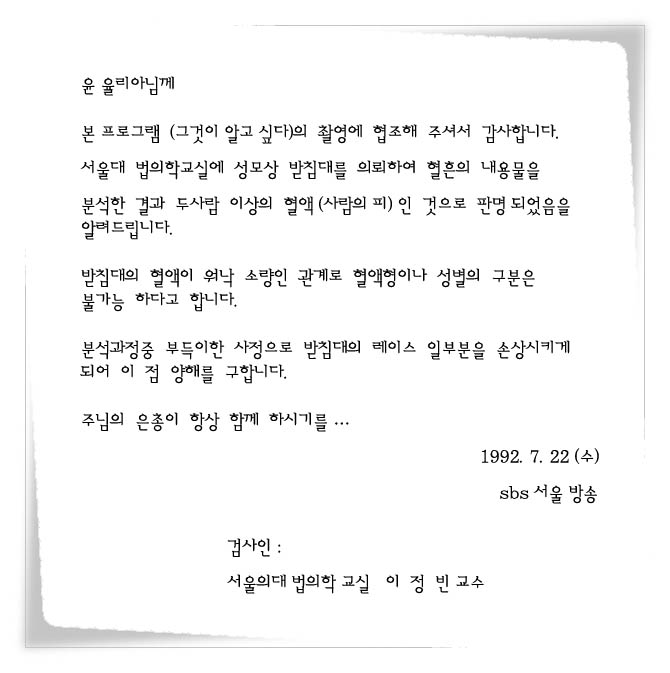 윤 율리아님께
본 프로그램 (그것이 알고 싶다)의 촬영에 협조해 주셔서 감사합니다.
서울대 법의학교실에 성모상 받침대를 의뢰하여 혈흔의 내용물을
분석한 결과 두사람 이상의 혈액 (사람의 피) 인 것으로 판명 되었음을
알려드립니다.
받침대의 혈액이 워낙 소량인 관계로 혈액형이나 성별의 구분은
불가능 하다고 합니다.
분석과정중 부득이한 사정으로 받침대의 레이스 일부분을 손상시키게
되어 이 점 양해를 구합니다.
주님의 은총이 항상 함께 하시기를 ...
1992. 7. 22 (수)
sbs 서울 방송
검사인 :
서울의대 법의학 교실 이 정 빈 교수